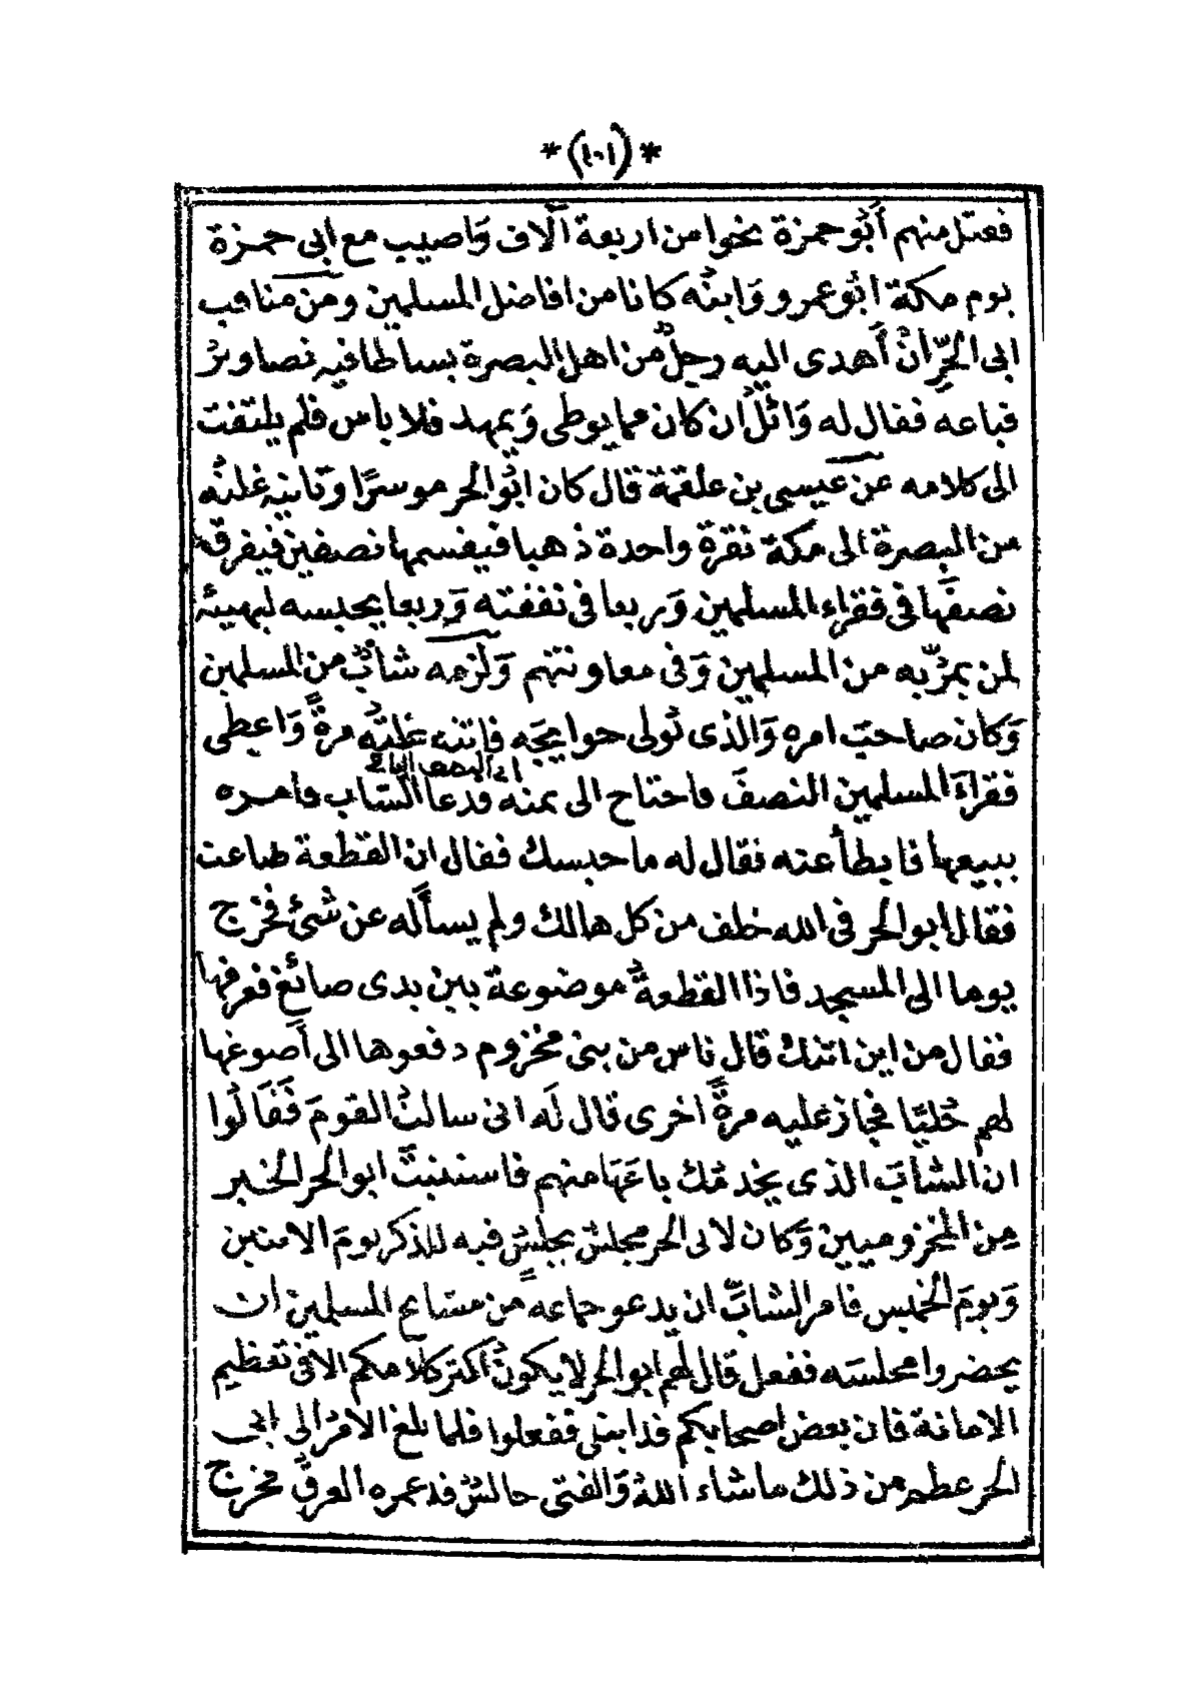 *(١٠١)*
فقتل منهم أَبُو حمزة نحوا من اربعة آلاف وَاصيب مع ابى حمزة
يوم مكة ابُو عمرو وَابنُه كانا من افاضل المسلمين ومن مناقب
ابى الحُرِّ انْ أَهدى اليه رجلٌ من اهل البصرة بساطا فيه تصاويرُ
فباعه فقال له وَائلُ ان كان مما يوطى وَيمهد فلا باس فلم يلتفت
الى كلامه عن عيسى بن علقمة قال كان ابُو الحر موسرًا وتاتيه غلتُه
من البصرة الى مكة نقرةً واحدة ذهبا فيقسمها نصفين فيفرق
نصفَها فى فقراء المسلمين وَربعا فى نفقته وَربعا يحبسه ليهيئه
لمن يمرّ به من المسلمين وَفى معاونتهم وَلزمه شابٌّ من المسلمين
وَكان صاحبَ امره وَالذى تولى حوايجَه فاتته غلتُه مرةً وَاعطى
فقراءَ المسلمين النصفَ فاحتاج الى ثمنه فدعا الشاب فامره
اى النصف الباقى
ببيعها فابطأ عنه فقال له ما حبسك فقال ان القطعة ضاعت
فقال ابو الحر فى الله خلف من كل هالك ولم يسأله عن شئ فخرج
يوما الى المسجد فاذا القطعةُ موضوعة بين يدى صائغ فعرفها
فقال من اين اتتك قال ناس من بنى مخزوم دفعوها الى أَصوغها
لهم حُليّا فجاز عليه مرةً اخرى قال لَه انى سالتُ القومَ فَقَالُوا
ان الشابَّ الذى يخدمُك باعَهَا منهم فاستثبتَ ابو الحر الخبر
من المخزوميين وَكان لابى الحر مجلسٌ يجلسُ فيه للذكر يومَ الاثنين
وَيومَ الخميس فامر الشابَّ ان يدعو جماعةً من مشايخ المسلمين ان
يحضروا مجلسَه ففعل قال لهم ابو الحر لا يكونُ اكثر كلامكم الا فى تعظيم
الامانة فان بعض اصحابكم قد ابتلى ففعلوا فلما بلغ الامرُ الى ابى
الحر عظم من ذلك ما شاء اللهُ وَالفتى جالسٌ قد غمره العرقُ فخرج